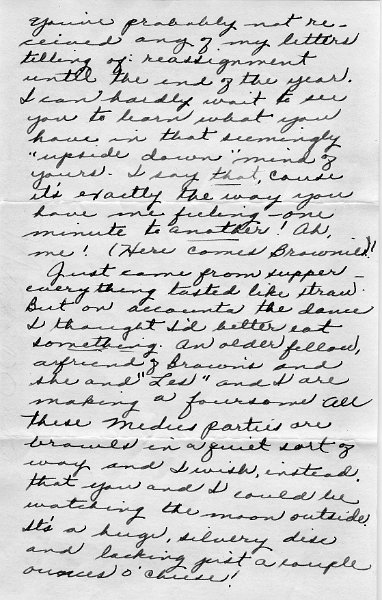 You've probably not re-
ceived any of my letters
telling of reassignment
until the end of the year.
I can hardly wait to see
you to learn what you
have in that seemingly
"upside down" mind of
yours. I say that, 'cause
it's exactly the way you
have me feeling - one
minute to another! Ah,
me! (Here comes Brownie!)
Just came from supper -
everything tasted like straw.
But on accounta the dance
I thought I'd better eat
something. An older fellow,
a friend of Brown's and
she and "Les" and I are
making a foursome. All
these Medics parties are
brawls in a quiet sort of
way and I wish, instead,
that you and I could be
watching the moon outside.
It's a huge, silvery disc
and lacking just a couple
ounces o' cheese!